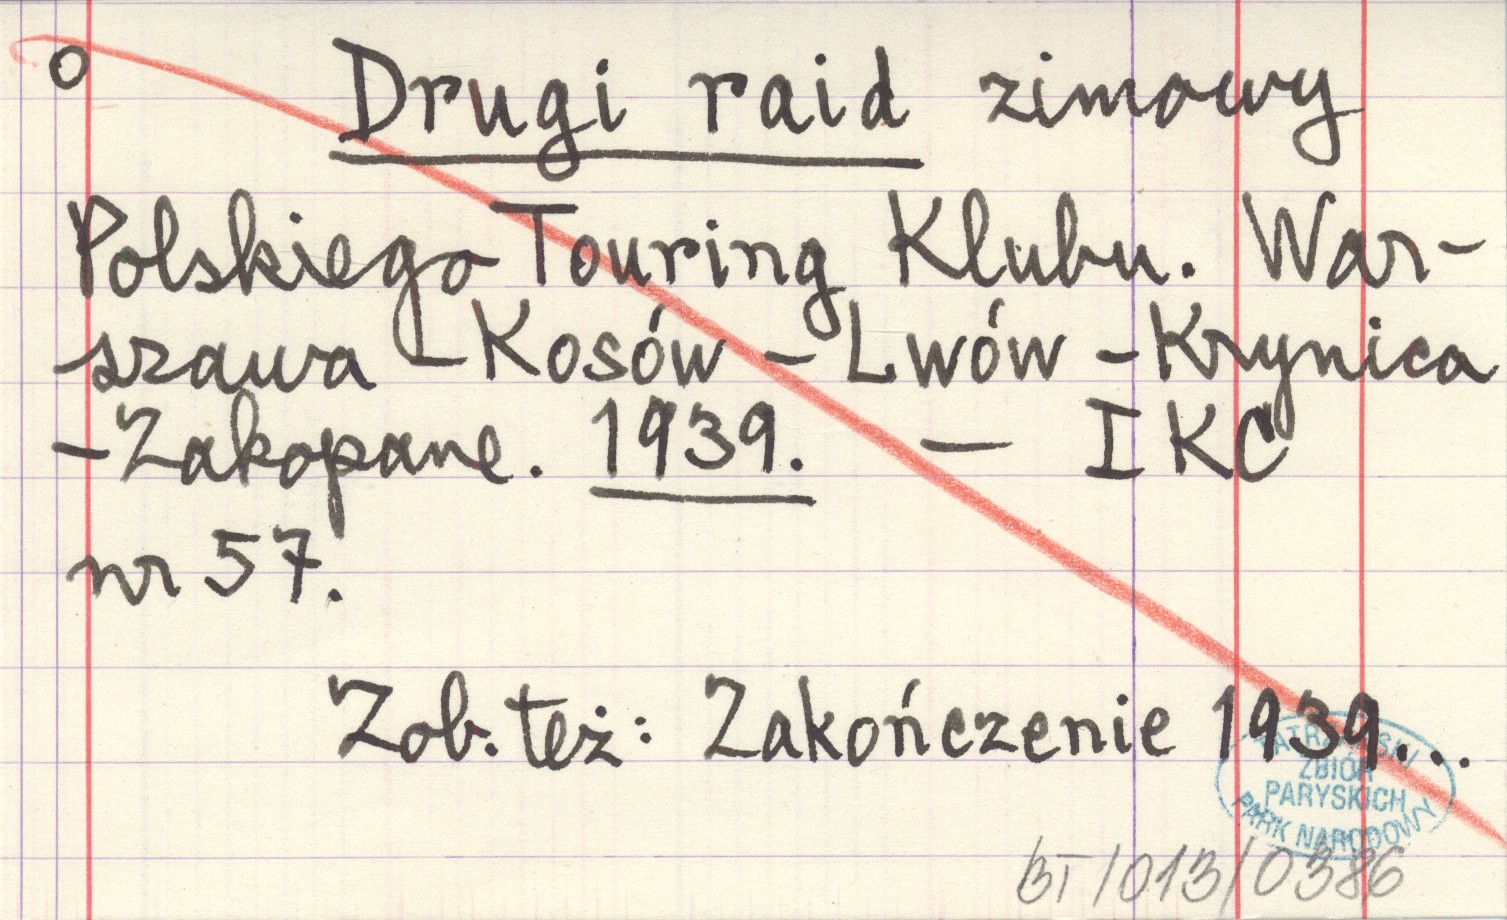 o Drugi raid zimowy
Polskiego Touring Klubu. War-
szawa - Kosów - Lwów - Krynica
- Zakopane. 1939. — IKC
nr 57.
Zob. też: Zakończenie 1939...
TATRZAŃSKI
ZBIÓR
PARYSKICH
PARK NARODOWY
BT/013/0386